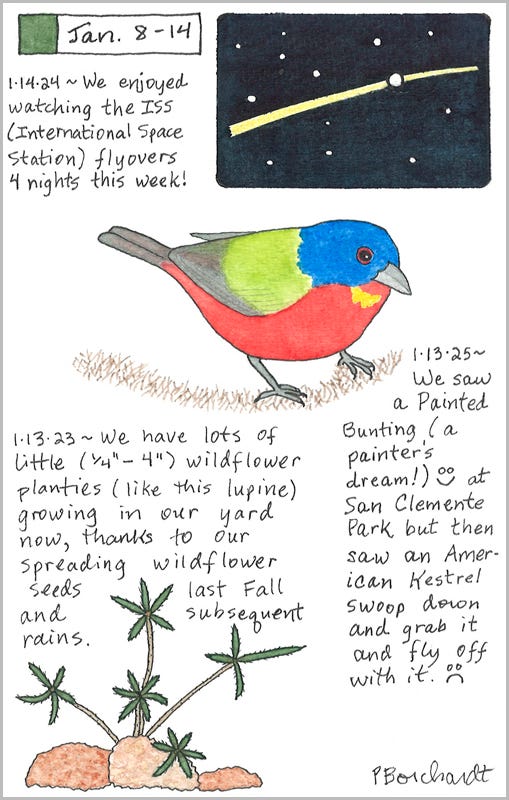 Jan. 8-14
1·14·24 ~ We enjoyed
watching the ISS
(International Space
Station) flyovers
4 nights this week!
1·13·25~
We saw
a Painted
Bunting (a
painter's
dream!) at
San Clemente
Park but then
saw an Amer-
ican Kestrel
swoop down
and grab it
and fly off
with it.
1·13·23 ~ We have lots of
little (¼"- 4") wildflower
planties (like this lupine)
growing in our yard
now, thanks to our
spreading wildflower
seeds last Fall
and subsequent
rains.
PBorchardt